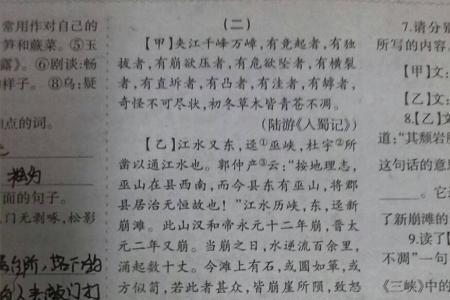 常用作对自己的
笋和蕨菜。⑤玉
露》。⑥剧谈:畅
样子。⑧乌:疑
点的词。
面的句子。
门无剥啄,松影
(二)
【甲】夹江千峰万嶂,有竞起者,有独
拔者,有崩欲压者,有危欲坠者,有横裂
者,有直坼者,有凸者,有洼者,有罅者,
奇怪不可尽状,初冬草木皆青苍不凋。
(陆游《入蜀记》)
【乙】江水又东,迳①巫峡,杜宇②所
凿以通江水也。郭仲产③云:“按地理志,
巫山在县西南,而今县东有巫山,将郡
县居治无恒故也!”江水历峡,东,迳新
崩滩。此山汉和帝永元十二年崩,晋太
元二年又崩。当崩之日,水逆流百余里,
涌起数十丈。今滩上有石,或圆如箪,或
方似笥,若此者甚众,皆崩崖所陨,致怒
7.请分别
所写的内容
【甲】文:
【乙】文:
8.【乙】文
道:“其颓岩
这句话的意
。它
了新崩滩的
9.读了【
不凋”一句
《三峡》中的